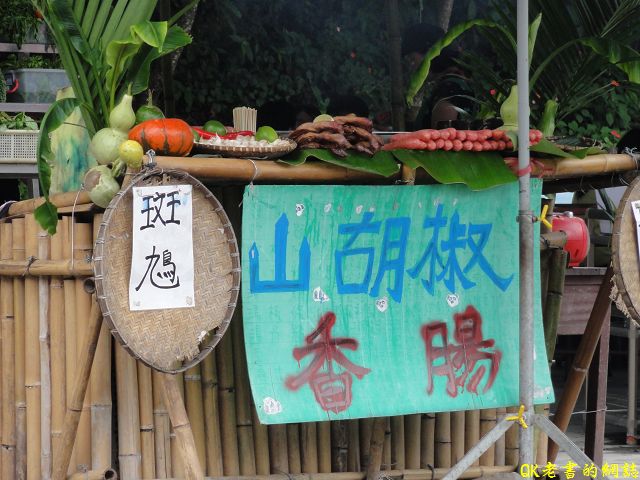 斑
鳩
山胡椒
香腸
QK老書的網誌